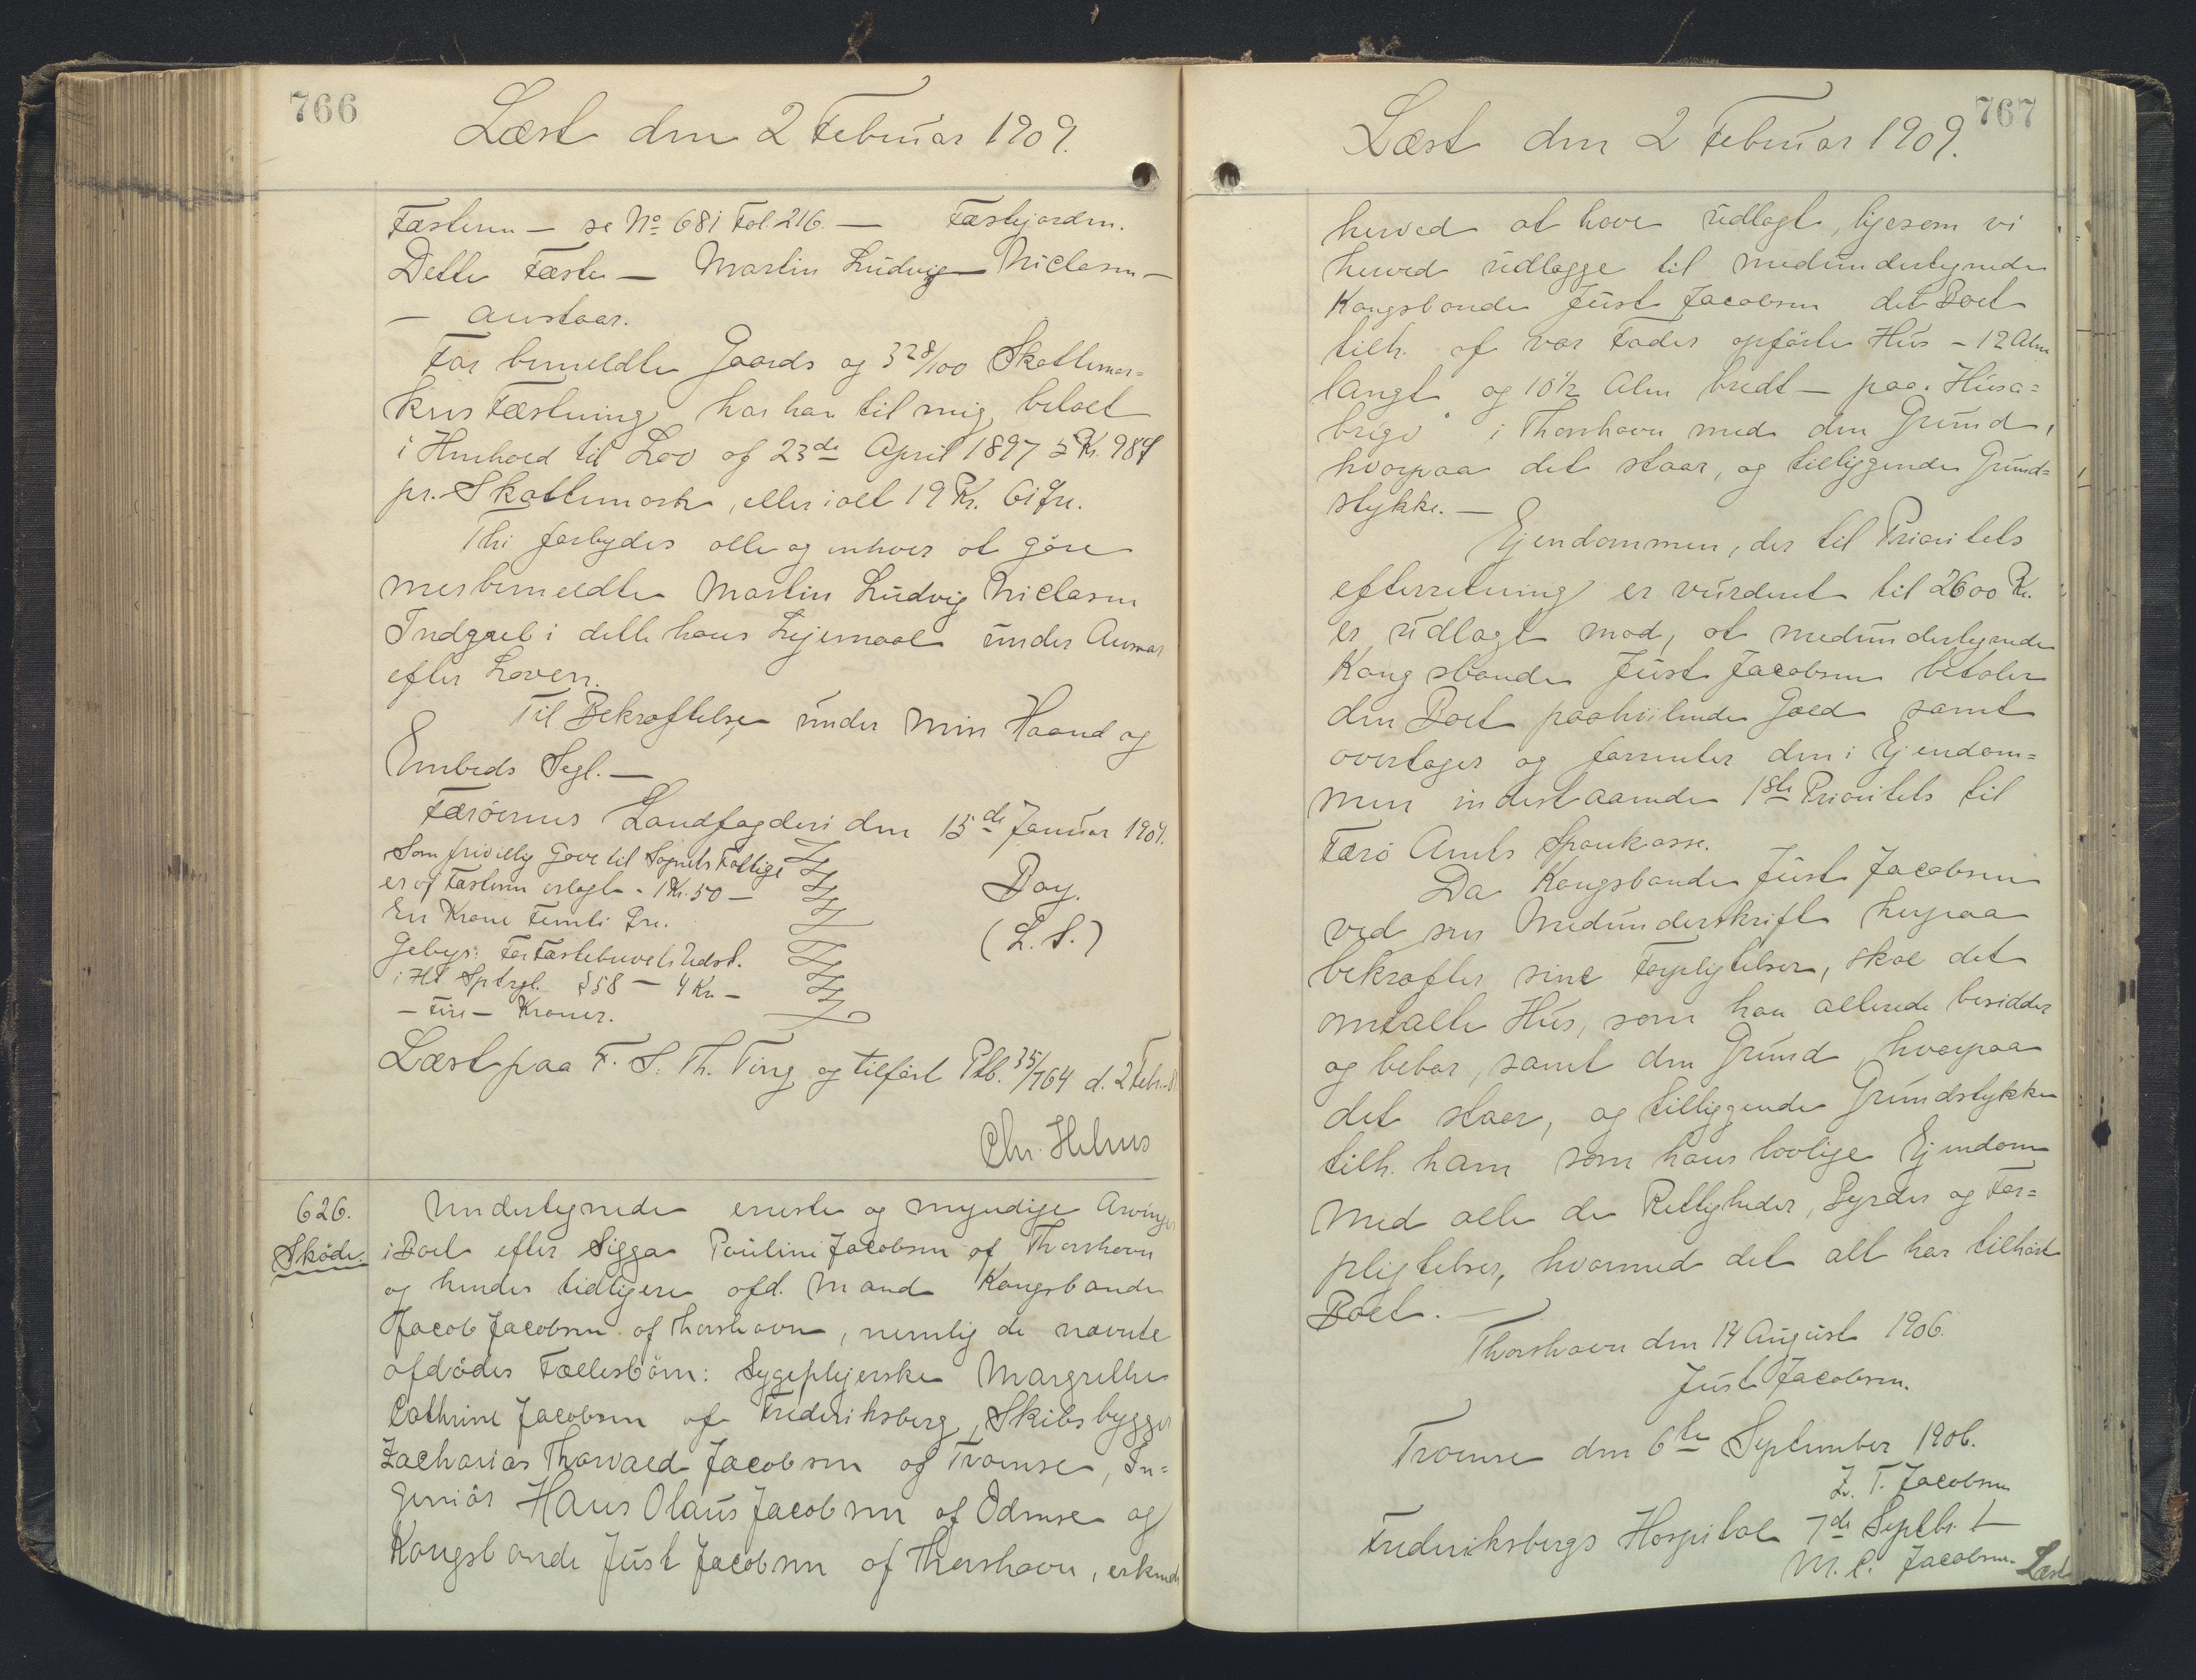 766
Læst den 2 Februar 1909.
Fæsteren - se No 681 Fol. 216. - Fæstejorden.
Dette Fæste - Martin Ludvig Niclasen -
- anstaar.
For bemeldte Gaards og 3 28/100 Skattemar-
kers Fæstning har han til mig betalt
i Henhold til Lov af 23de April 1897 5 Kr. 98 Ø
pr. Skattemark, eller ialt 19 Kr. 61 Øre.
Thi forbydes alle og enhver at gøre
merbemeldte Martin Ludvig Niclasen
Indgreb i dette hans Lejemaal under Ansvar
efter Loven.
Til Bekræftelse under min Haand og
Embeds Segl. -
Færøernes Landfogderi den 15de Januar 1909.
Som frivillig Gave til Sognets Fattige
er af Fæsteren erlagt - 1 Kr. 50 -
En Krone Femti Øre.
Gebyr: For Fæstebrevets Udst.
i Hl Sptrgl. § 58 - 4 Kr. -
- Fire - Kroner.
Bay.
(L. S.)
Læst paa F. S. Th. Ting og tilført Ptb. 35/764 d. 2 Febr.
Chr. Helms
626.
Skøde.
Undertegnede eneste og myndige Arvinger
i Boet efter Sigga Pouline Jacobsen af Thorshavn
og hendes tidligere afd. Mand Kongsbonde
Jacob Jacobsen af Thorshavn, nemlig de nævnte
afdødes Fællesbørn: Sygeplejerske Margrethe
Cathrine Jacobsen af Frederiksberg, Skibsbygger
Zacharias Thorvald Jacobsen af Tromsø, In-
geniør Hans Olaus Jacobsen af Odense og
Kongsbonde Just Jacobsen af Thorshavn, erkende
767
Læst den 2 Februar 1909.
herved at have udlagt, ligesom vi
herved udlægge til medundertegnede
Kongsbonde Just Jacobsen det Boet
tilh. af vor Fader opførte Hus - 12 Alen
langt og 10 1/2 Alen bredt - paa "Húsa-
brígv" i Thorshavn med den Grund,
hvorpaa det staar, og tilliggende Grund-
stykke. -
Ejendommen, der til Prioritets
efterretning er vurderet til 2600 Kr.
er udlagt mod, at medundertegnede
Kongsbonde Just Jacobsen betaler
den Boet paahvilende Gæld samt
overtager og forrenter den i Ejendom-
men indestaaende 1ste Prioritets til
Færø Amts Sparekasse.
Da Kongsbonde Just Jacobsen
ved sin Medunderskrift herpaa
bekræfter sine Forpligtelser, skal det
omtalte Hus, som han allerede besidder
og bebor, samt den Grund, hvorpaa
det staar, og tilliggende Grundstykke
tilh. ham som hans lovlige Ejendom
med alle de Rettigheder, Byrder og For-
pligtelser, hvormed det alt har tilhørt
Boet. -
Thorshavn den 14 August 1906.
Just Jacobsen.
Tromsø den 6te September 1906.
Z. T. Jacobsen
Frederiksbergs Hospital 7de Septbr.
M. C. Jacobsen.
Læst